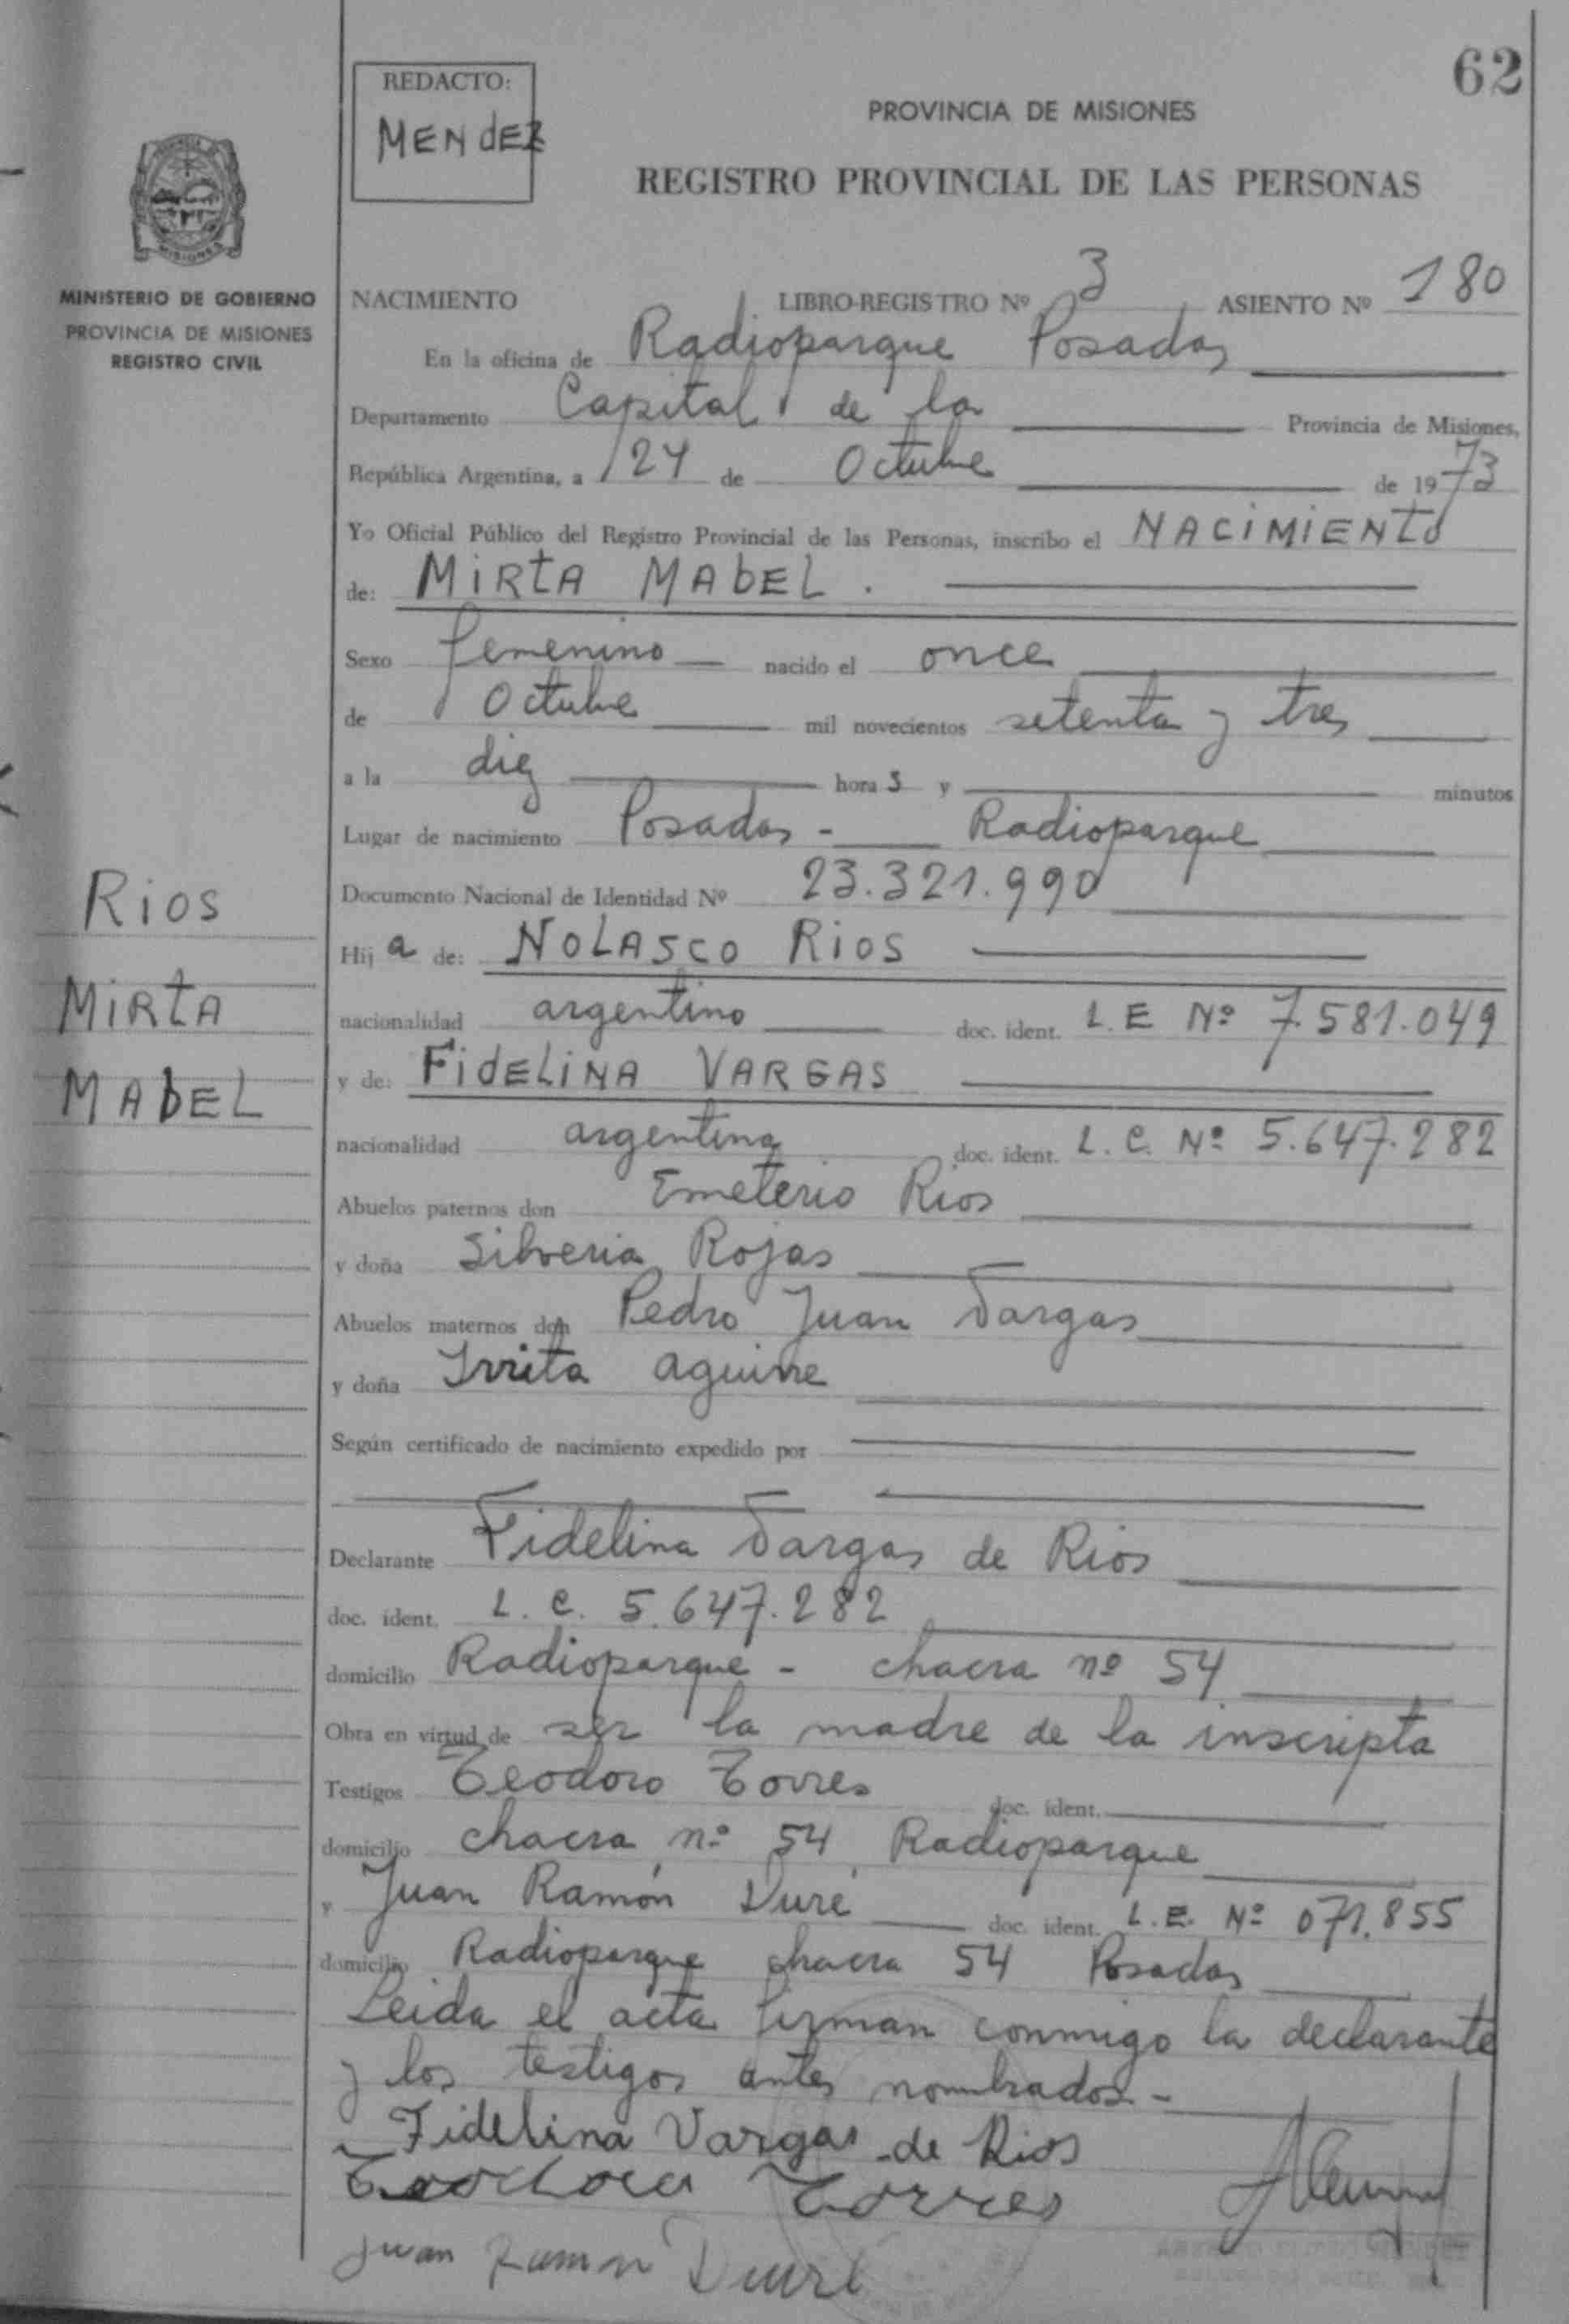 62
REDACTO:
MENdEZ
PROVINCIA DE MISIONES
REGISTRO PROVINCIAL DE LAS PERSONAS
MISIONES
MINISTERIO DE GOBIERNO
PROVINCIA DE MISIONES
REGISTRO CIVIL
NACIMIENTO LIBRO-REGISTRO Nº 3 ASIENTO Nº 180
En la oficina de Radioparque Posadas
Departamento Capital de la Provincia de Misiones,
República Argentina, a 24 de Octubre de 1973
Yo Oficial Público del Registro Provincial de las Personas, inscribo el NACIMIENTO
de: MIRTA MAbEL.
Sexo femenino nacido el once
de Octubre mil novecientos setenta y tres
a la diez horas y minutos
Lugar de nacimiento Posadas - Radioparque
Documento Nacional de Identidad Nº 23.321.990
Rios
Hija de: NOLASCO RIOS
MIRTA
nacionalidad argentino doc. ident. L.E Nº 7.581.049
MAbEL
y de: FIdELINA VARGAS
nacionalidad argentina doc. ident. L.C. Nº 5.647.282
Abuelos paternos don Emeterio Rios
y doña Silveria Rojas
Abuelos maternos don Pedro Juan Vargas
y doña Irrita Aguirre
Según certificado de nacimiento expedido por
Declarante Fidelina Vargas de Rios
doc. ident. L.C. 5.647.282
domicilio Radioparque - chacra nº 54
Obra en virtud de ser la madre de la inscripta
Testigos Teodoro Torres doc. ident.
domicilio chacra nº 54, Radioparque
y Juan Ramón Duré doc. ident. L.E. Nº 071.855
domicilio Radioparque chacra 54 Posadas
Leida el acta firman conmigo la declarante
y los testigos antes nombrados.-
Fidelina Vargas de Rios
Torres
Juan Ramon Duré